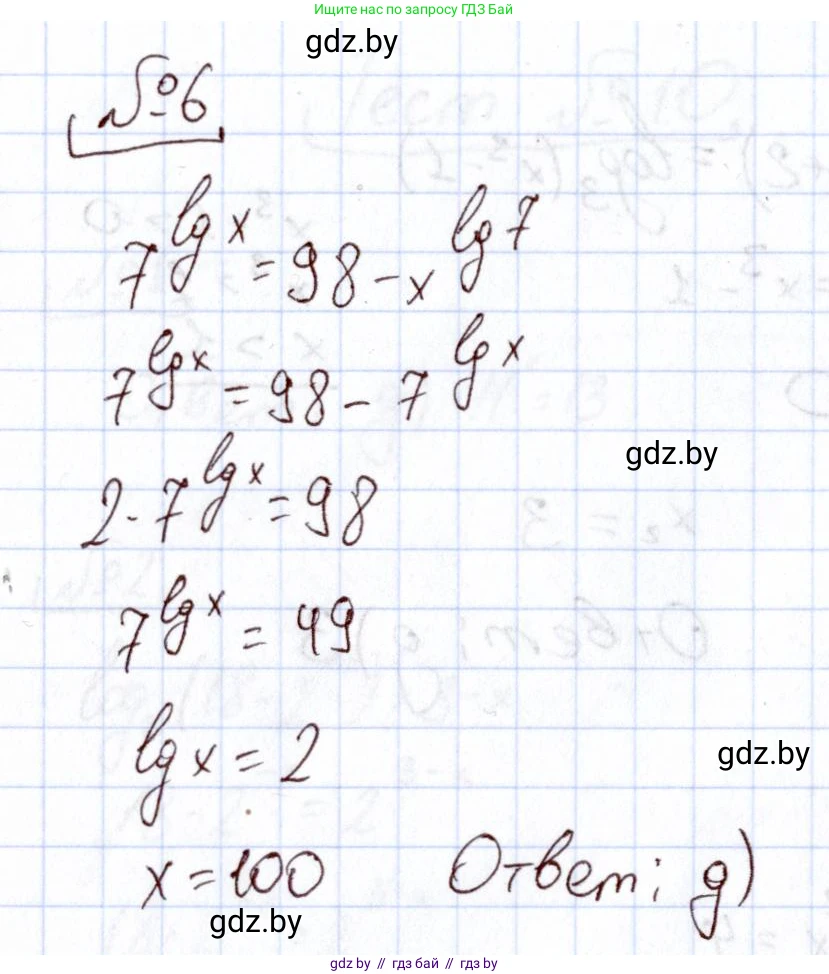 Ищите нас по запросу ГДЗ Бай
gdz.by
№6
7^{lg x} = 98 - x^{lg 7}
7^{lg x} = 98 - 7^{lg x}
gdz.by
2 · 7^{lg x} = 98
7^{lg x} = 49
lg x = 2
gdz.by
x = 100 Ответ: д)
gdz.by
gdz.by // гдз бай // гдз by